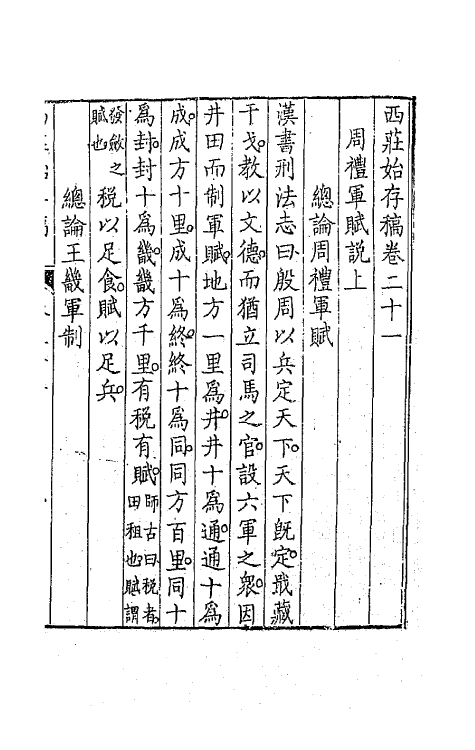 西莊始存稿卷二十一
周禮軍賦說上
總論周禮軍賦
漢書刑法志曰殷周以兵定天下天下既定戢藏
干戈教以文德而猶立司馬之官設六軍之衆因
井田而制軍賦地方一里爲井井十爲通通十爲
成成方十里成十爲終終十爲同同方百里同十
爲封封十爲畿畿方千里有税有賦師古曰税者田租也賦謂
發斂之賦也税以足食賦以足兵
總論王畿軍制